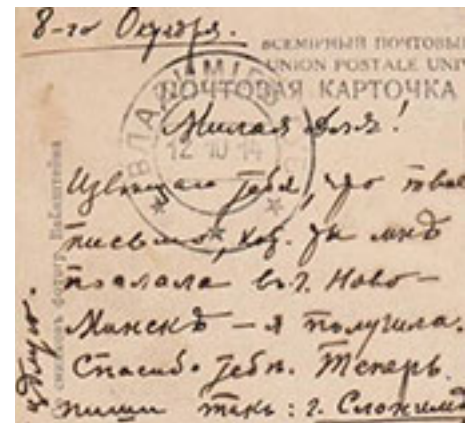 8-го Октября.
ВСЕМІРНЫЙ ПОЧТОВЫЙ
UNION POSTALE UNIV
ПОЧТОВАЯ КАРТОЧКА
12 10 14
Милая
Извѣщаю тебя, что твое
письмо, кот. ты мнѣ
послала въ г. Ново-
Минскъ — я получила.
Спасибо тебѣ. Теперь
пиши такъ: г.
Со снимковъ фотогр.